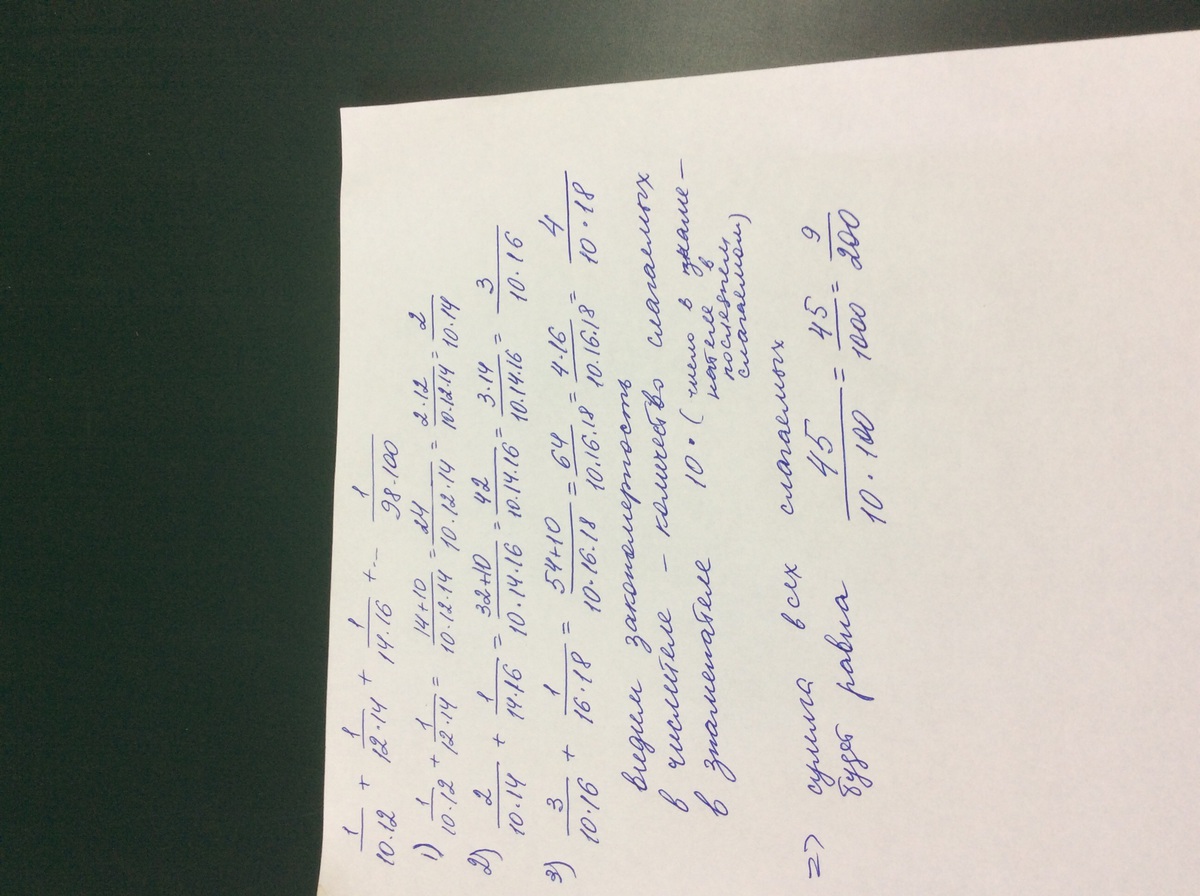 1/10·12 + 1/12·14 + 1/14·16 + ... 1/98·100
1) 1/10·12 + 1/12·14 = 14+10/10·12·14 = 24/10·12·14 = 2·12/10·12·14 = 2/10·14
2) 2/10·14 + 1/14·16 = 32+10/10·14·16 = 42/10·14·16 = 3·14/10·14·16 = 3/10·16
3) 3/10·16 + 1/16·18 = 54+10/10·16·18 = 64/10·16·18 = 4·16/10·16·18 = 4/10·18
видим закономерность
в числителе – количество слагаемых
в знаменателе 10·(число в знаме-
нателе в
последнем
слагаемом)
=> сумма всех слагаемых
будет равна 45/10·100 = 45/1000 = 9/200